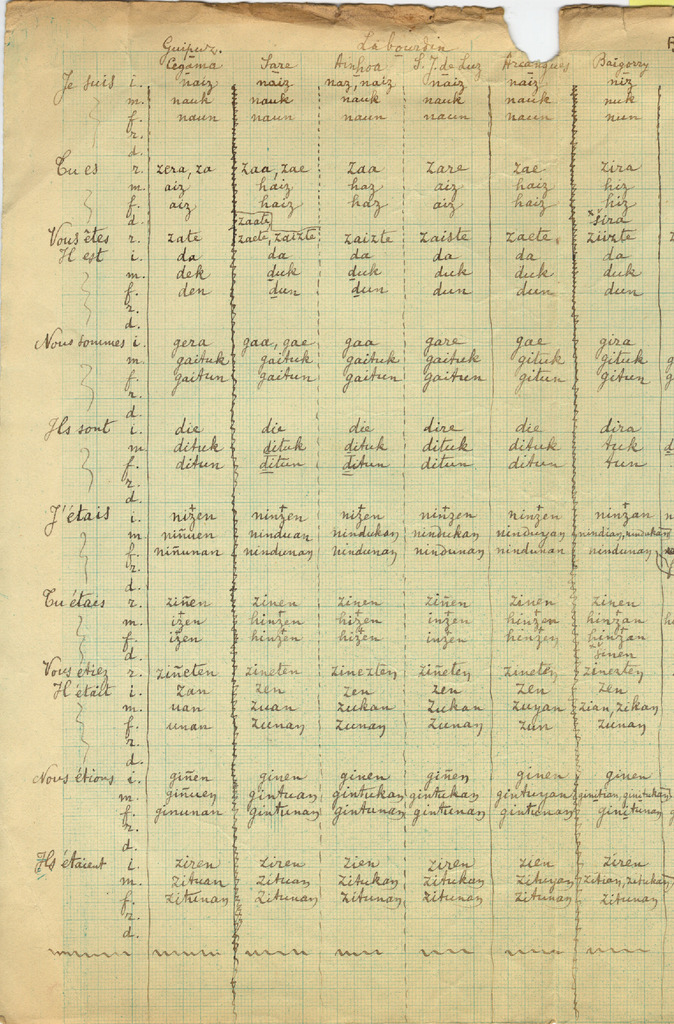 Guipuz. Labourdin
Cegama Sare Ainhoa S. J. de Luz Arcangues Baigorry
Je suis i. naiz naiz naz, naiz naiz naiz niz
m. nauk nauk nauk nauk nauk nuk
f. naun naun naun naun naun nun
r.
d.
Tu es r. zera, za zaa, zae zaa zare zae zira
m. aiz haiz haz aiz haiz hiz
f. aiz haiz haz aiz haiz hiz
d. zaate šira
Vous êtes r. zate zaete, zaizte zaizte zaiste zaete zirezte
Il est i. da da da da da da
m. dek duk duk duk duk duk
f. den dun dun dun dun dun
r.
d.
Nous sommes i. gera gaa, gae gaa gare gae gira
m. gaituk gaituk gaituk gaituk gituk gituk
f. gaitun gaitun gaitun gaitun gitun gitun
r.
d.
Ils sont i. die die die dire die dira
m. dituk dituk dituk dituk dituk tuk
f. ditun ditun ditun ditun ditun tun
r.
d.
J'étais i. nitzen nintzen nitzen nintzen nintzen nintzan
m niñuen ninduan nindukan nindukan ninduyan nindian, nindukan
f. niñunan nindunan nindunan nindunan nindunan nindunan
r.
d.
Tu étais r. ziñen zinen zinen ziñen zinen zinen
m. itzen hintzen hitzen intzen hintzen hintzan
f. itzen hintzen hitzen intzen hintzen hintzan
d. šinen
Vous étiez r. ziñeten zineten zinezten ziñeten zineten zinezten
Il était i. zan zen zen zen zen zen
m. uan zuan zukan zukan zuyan zian, zikan
f. unan zunan zunan zunan zun zunan
r.
d.
Nous étions i. giñen ginen ginen giñen ginen ginen
m. giñuen gintuan gintukan gintukan gintuyan ginitian, ginitukan
f. ginunan gintunan gintunan gintunan gintunan ginitunan
r.
d.
Ils étaient i. ziren ziren zien ziren zien ziren
m. zituan zituan zitukan zitukan zituyan zitian, zitukan
f. zitunan zitunan zitunan zitunan zitunan zitunan
r.
d.